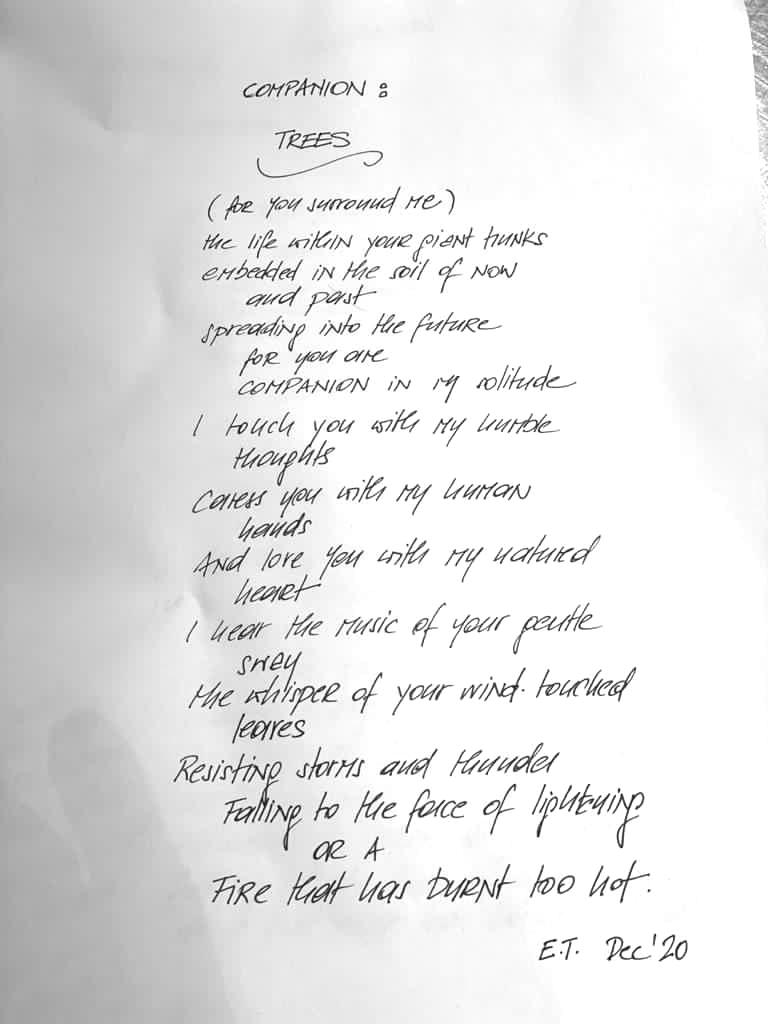 COMPANION :
TREES
(for you surround me)
the life within your giant trunks
embedded in the soil of now
and past
spreading into the future
for you are
COMPANION in my solitude
I touch you with my humble
thoughts
Caress you with my human
hands
And love you with my natured
heart
I hear the music of your gentle
sway
the whisper of your wind-touched
leaves
Resisting storms and thunder
Falling to the force of lightening
OR A
Fire that has burnt too hot.
E.T. Dec '20